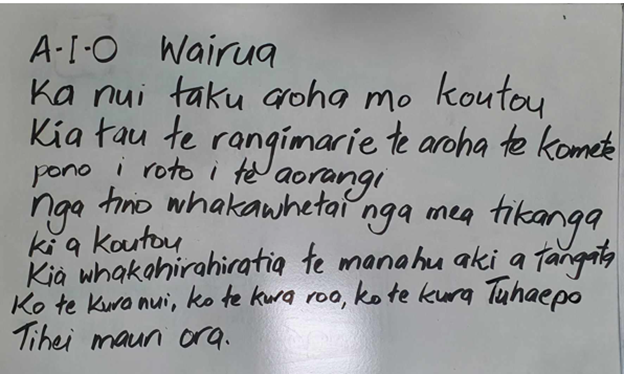 A-I-O Wairua
Ka nui taku aroha mo koutou
Kia tau te rangimarie te aroha te komete
pono i roto i te aorangi
nga tino whakawhetai nga mea tikanga
ki a koutou
Kia whakahirahiratia te manahu aki a tangata
Ko te kura nui, ko te kura roa, ko te kura Tuhaepo
Tihei mauri ora.